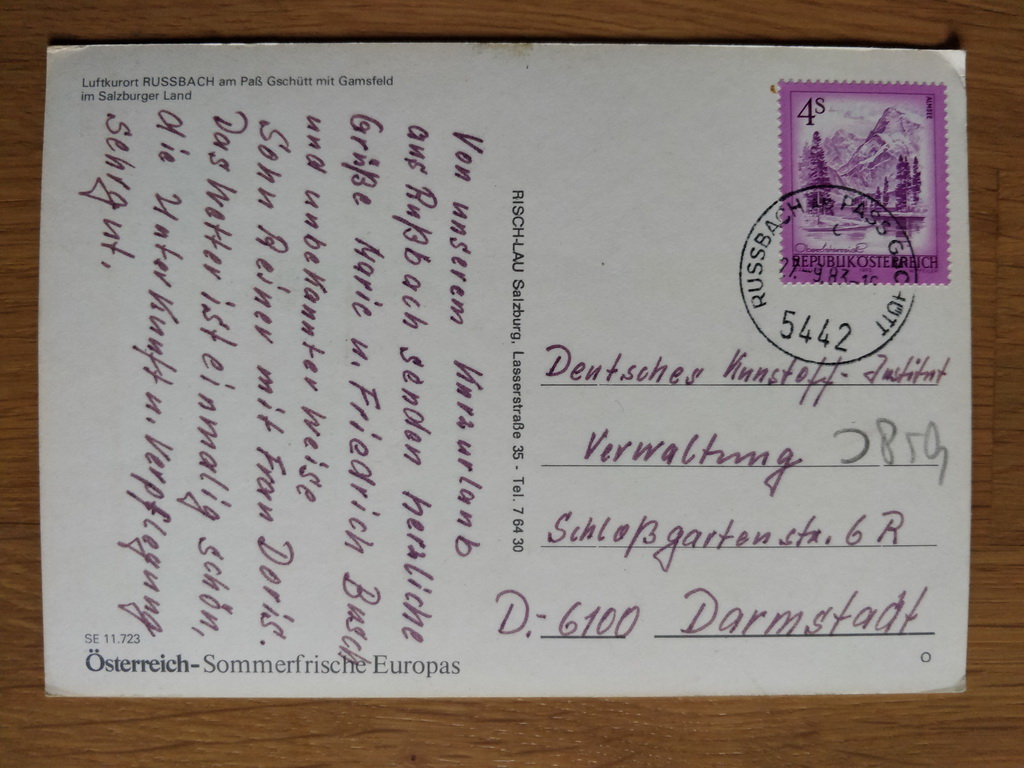 Luftkurort RUSSBACH am Paß Gschütt mit Gamsfeld
im Salzburger Land
Von unserem Kurzurlaub
aus Rußbach senden herzliche
Grüße Marie u. Friedrich Busch
und unbekannter weise
Sohn Reiner mit Frau Doris.
Das Wetter ist einmalig schön,
die Unterkunft u. Verpflegung
sehr gut.
SE 11.723
Österreich-Sommerfrische Europas
RISCH-LAU Salzburg, Lasserstraße 35 - Tel. 7 64 30
4S
ALMSEE
REPUBLIK ÖSTERREICH
RUSSBACH PASS GSCHÜTT
-9.83-
5442
Deutsches Kunstoff-Institut
Verwaltung
Schloßgartenstr. 6 R
D.-6100 Darmstadt